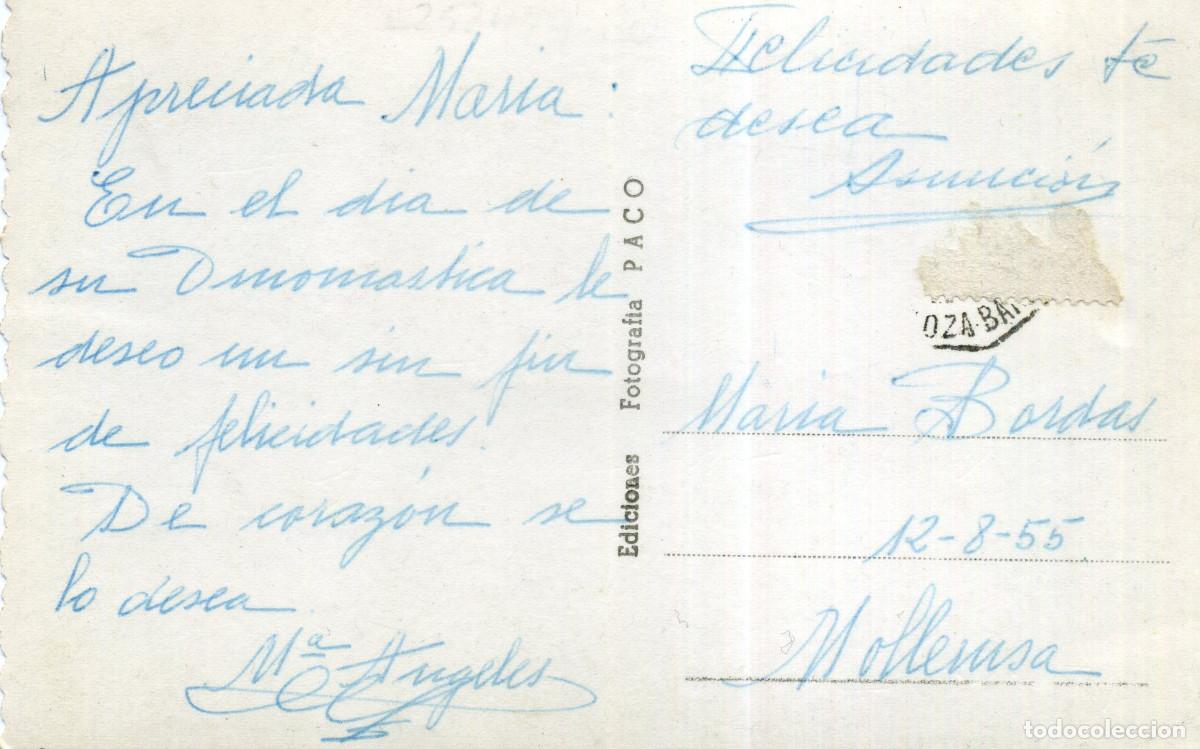 Apreciada Maria:
En el dia de
su Onomastica le
deseo un sin fin
de felicidades.
De corazón se
lo desea
Mª Angeles
Felicidades te
desea
Asunción
Ediciones Fotografia PACO
OZA-BAR
Maria Bordas
12-8-55
Mollerusa
todocoleccion